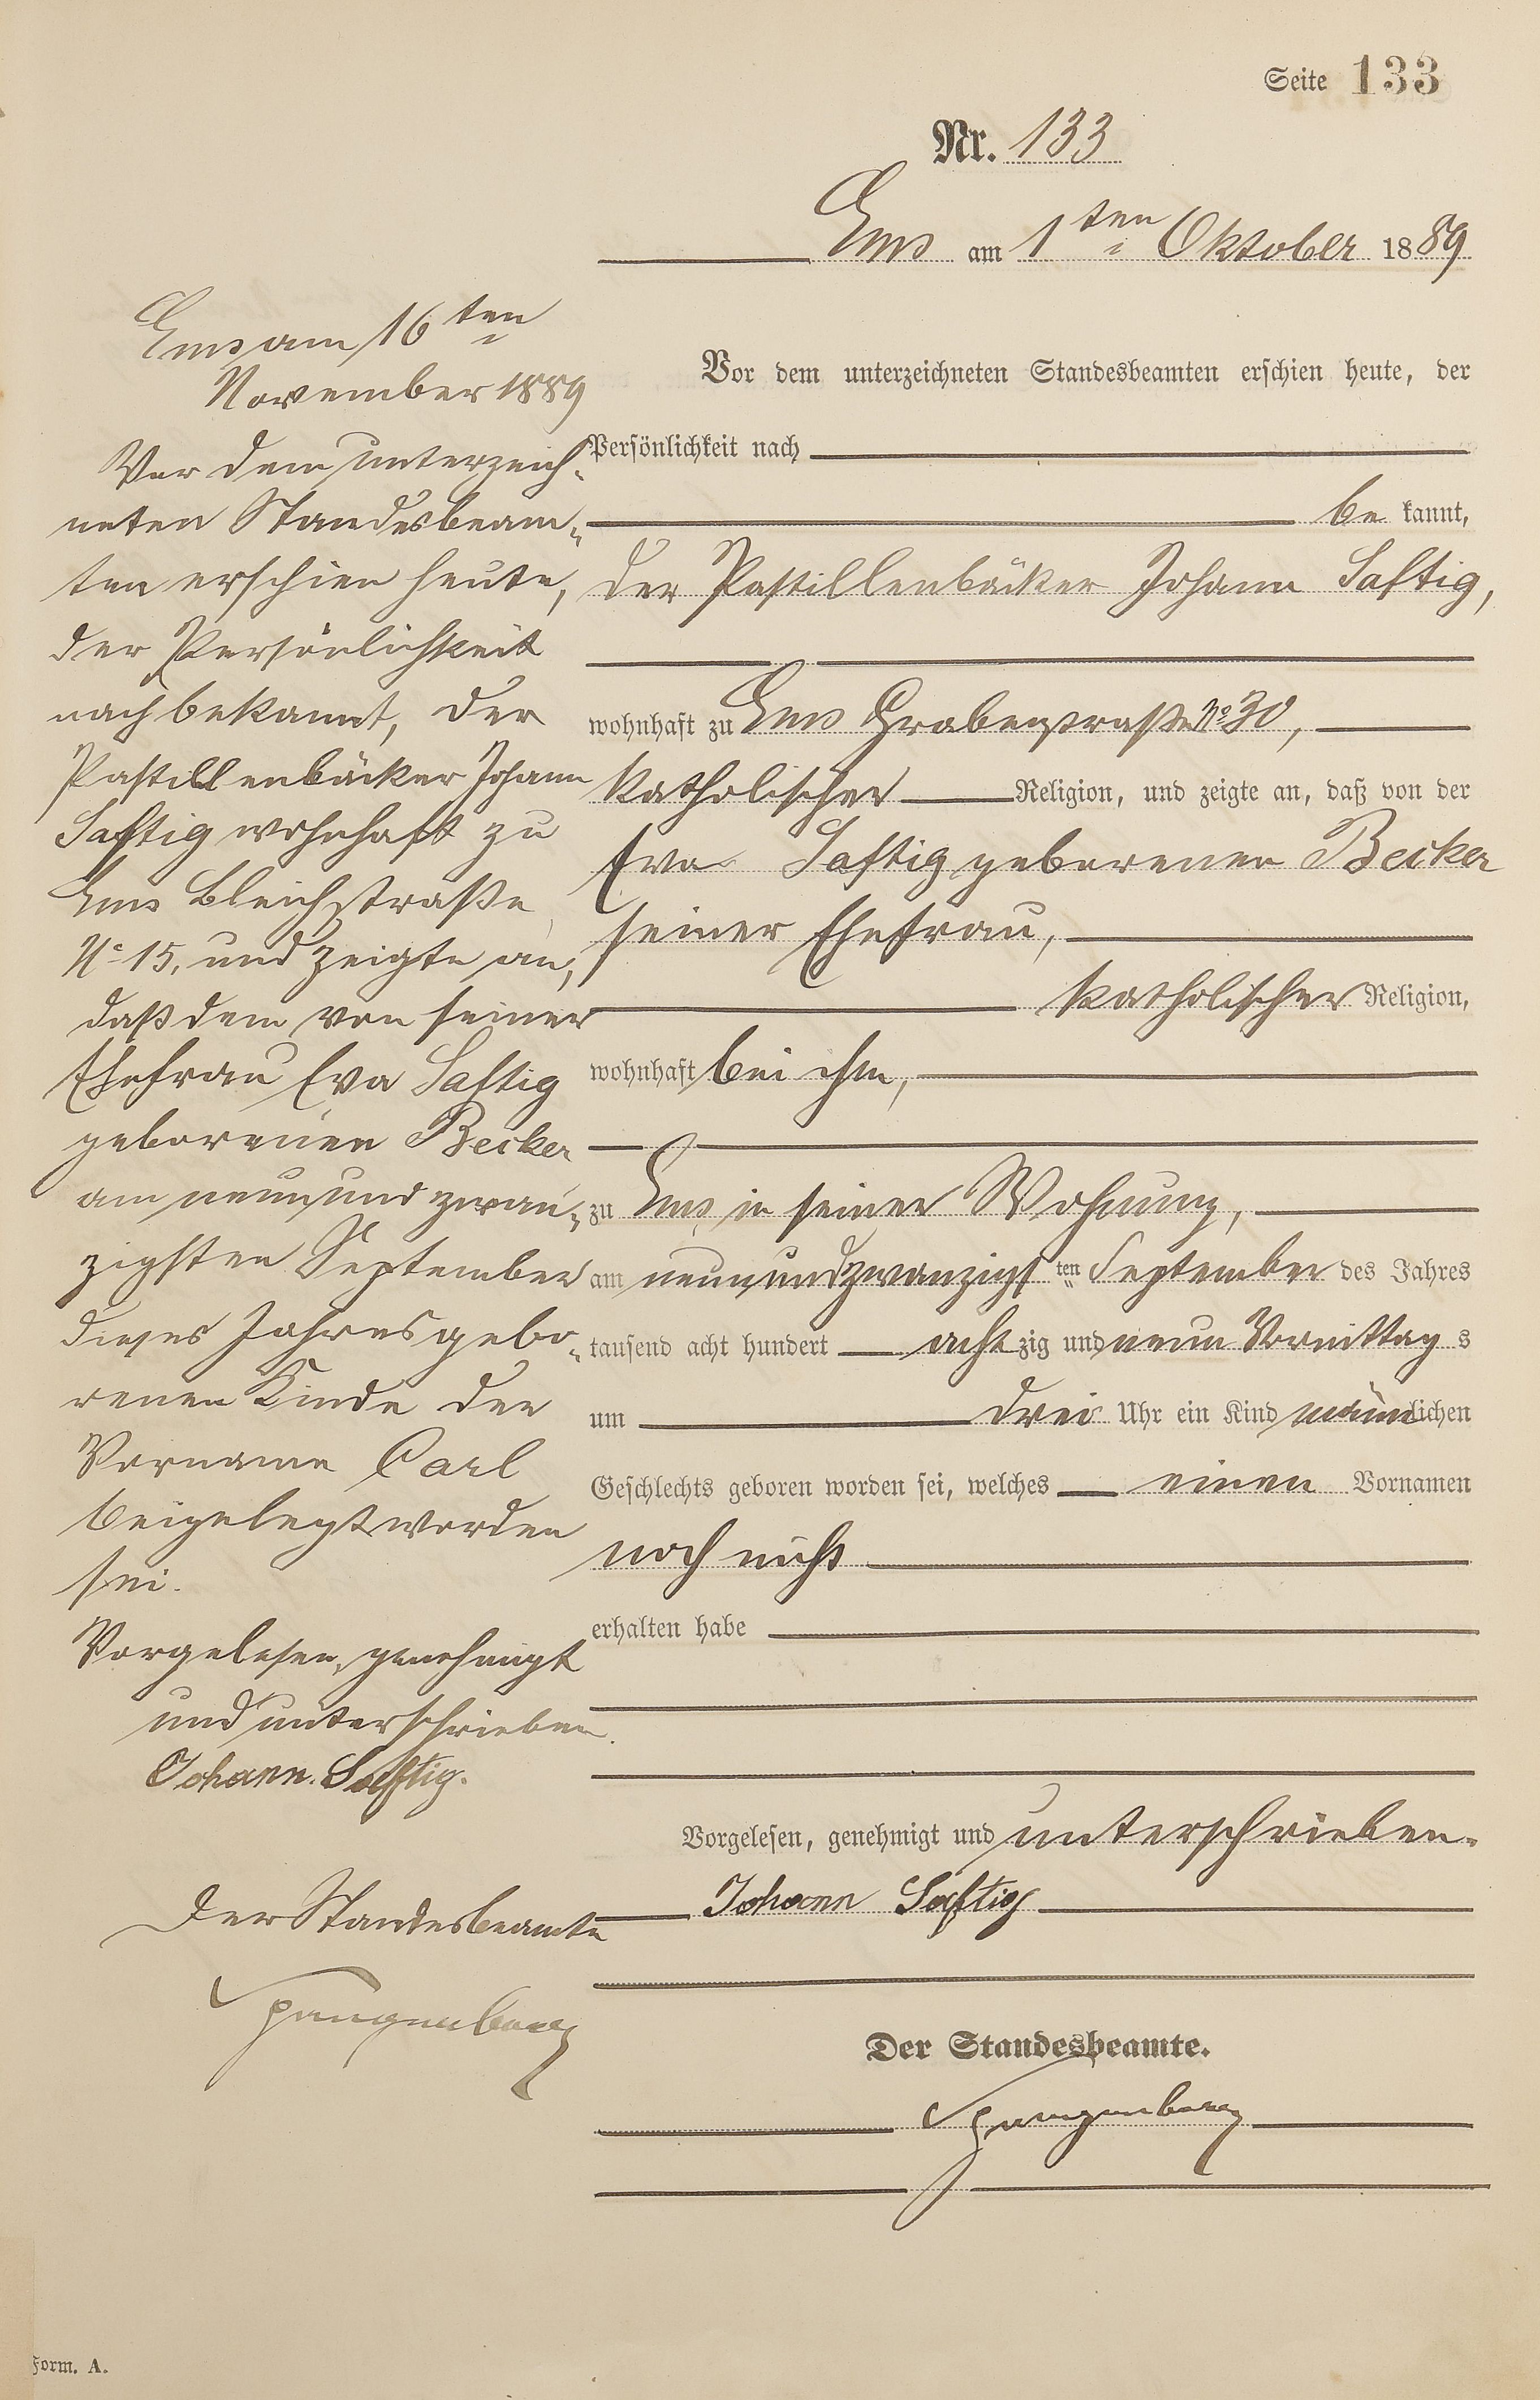 Seite 133
Nr. 133
Ems am 1ten Oktober 1889
Vor dem unterzeichneten Standesbeamten erschien heute, der
Persönlichkeit nach
be kannt,
der Pastillenbäcker Johann Saftig,
wohnhaft zu Ems Grabenstraße No 30,
katholischer Religion, und zeigte an, daß von der
Eva Saftig geborenen Becker
seiner Ehefrau,
katholischer Religion,
wohnhaft bei ihm,
zu Ems in seiner Wohnung,
am neunundzwanzigsten September des Jahres
tausend acht hundert achtzig und neun Vormittags
um drei Uhr ein Kind männlichen
Geschlechts geboren worden sei, welches einen Vornamen
noch nicht
erhalten habe
Vorgelesen, genehmigt und unterschrieben.
Johann Saftig
Der Standesbeamte.
Spangenberg
Ems am 16ten
November 1889
Vor dem unterzeich-
neten Standesbeam-
ten erschien heute,
der Persönlichkeit
nach bekannt, der
Pastillenbäcker Johann
Saftig wohnhaft zu
Ems Bleichstraße
No 15, und zeigte an,
daß dem von seiner
Ehefrau Eva Saftig
geborenen Becker
am neunundzwan-
zigsten September
dieses Jahres gebo-
renen Kinde der
Vorname Carl
beigelegt worden
sei.
Vorgelesen, genehmigt
und unterschrieben.
Johann Saftig.
Der Standesbeamte
Spangenberg
Form. A.